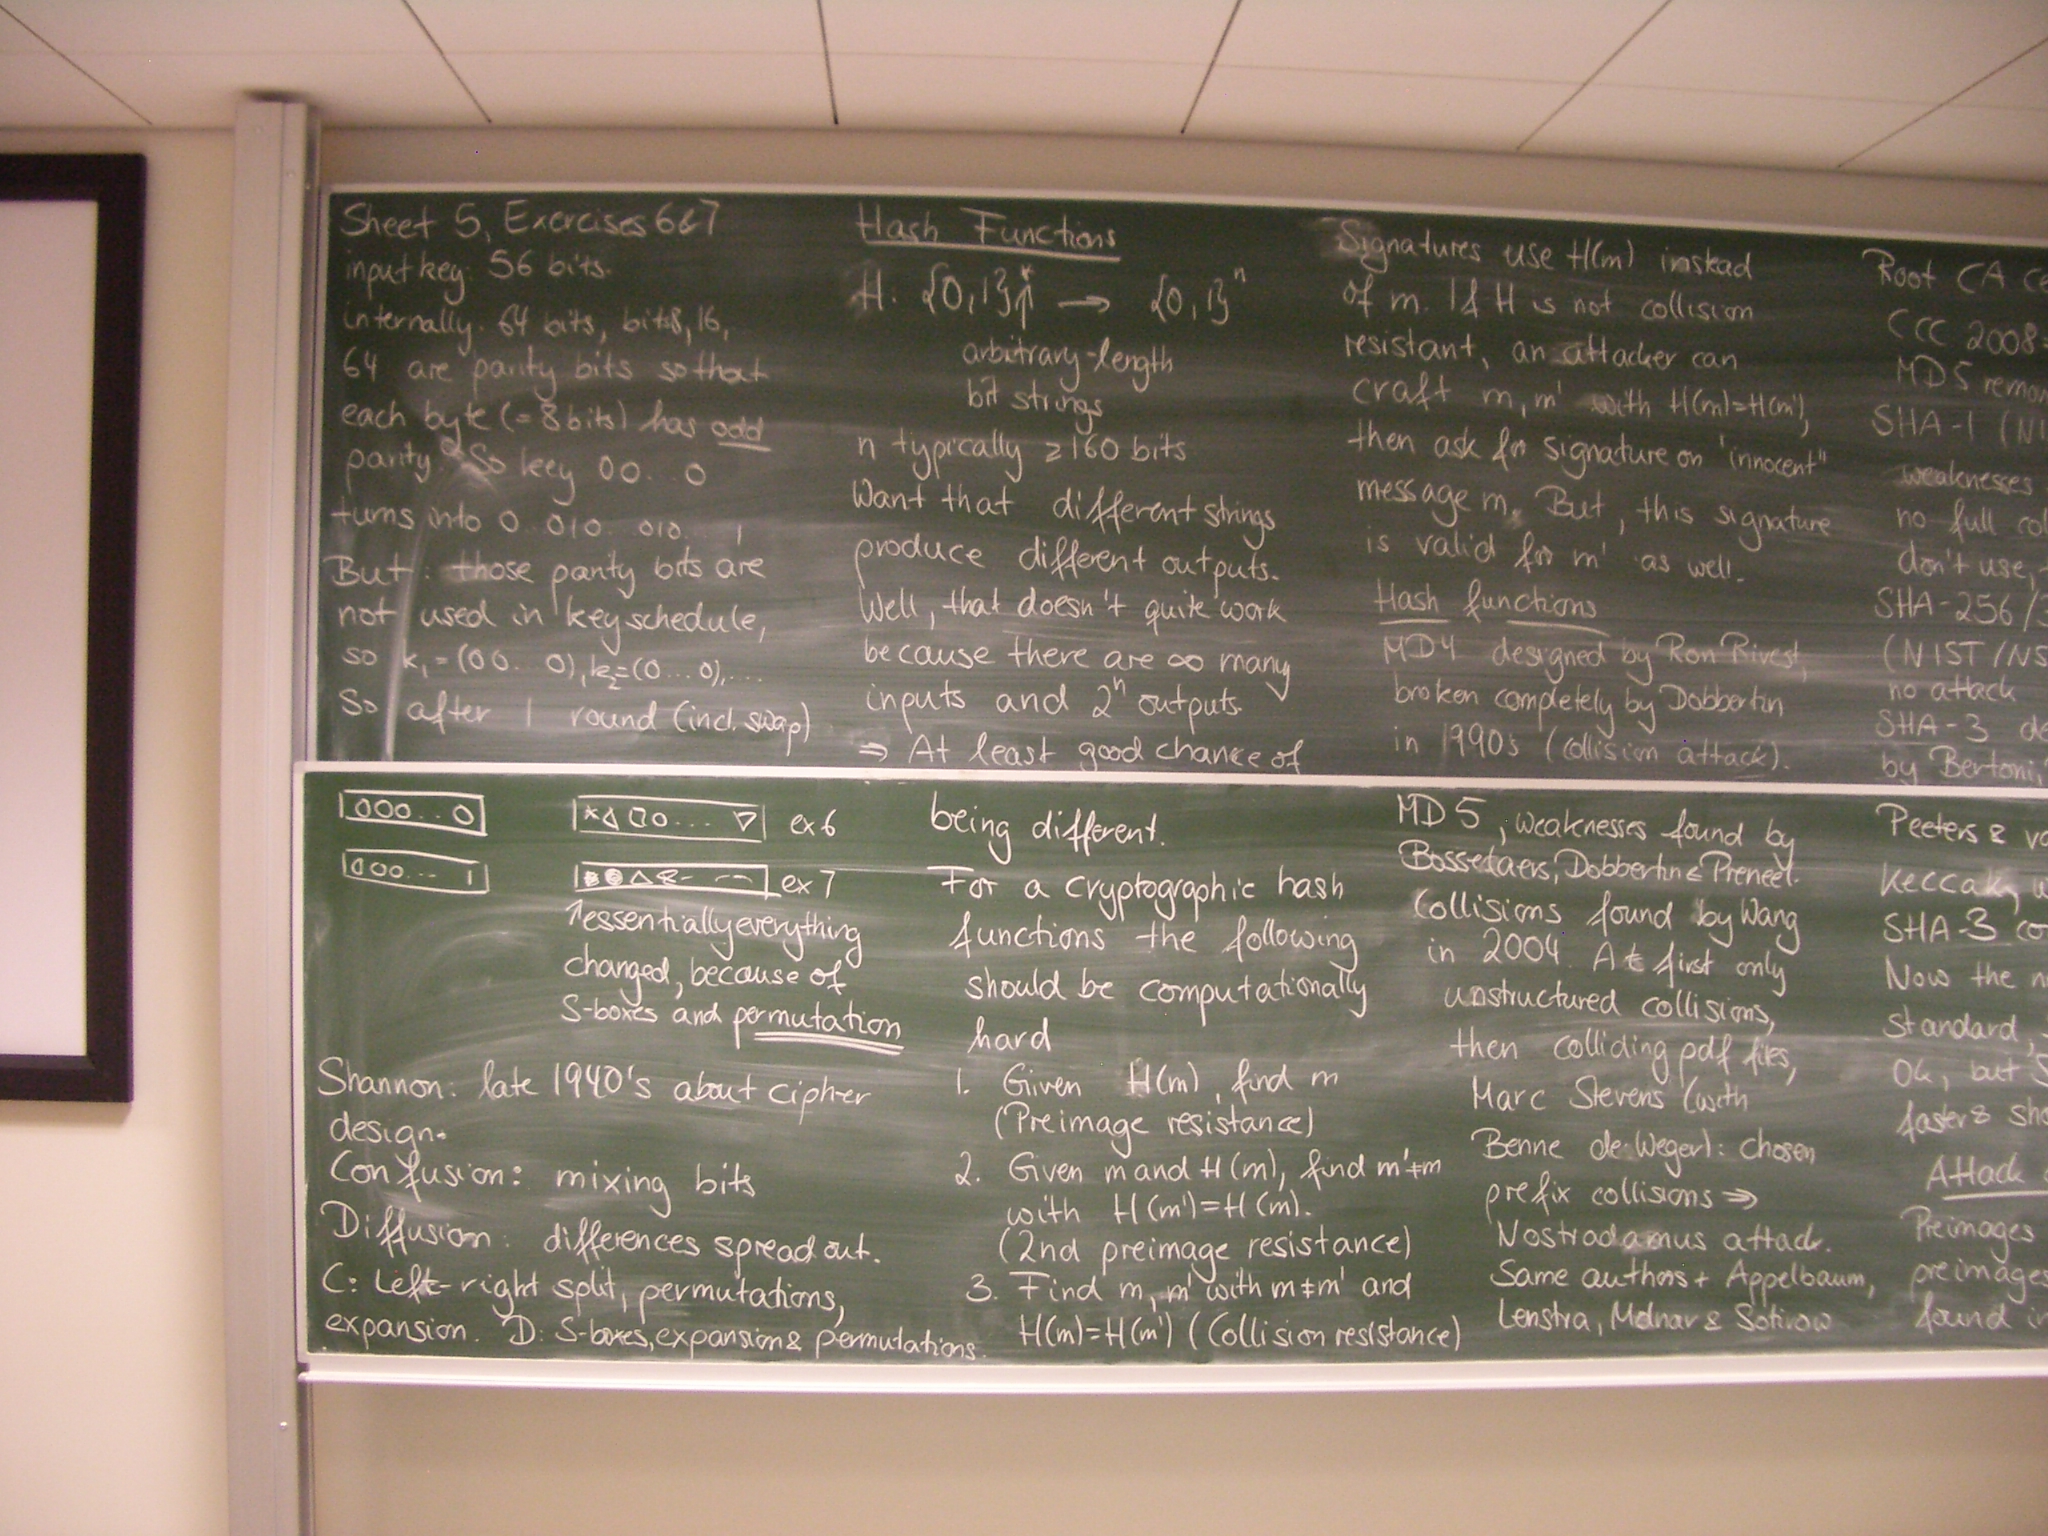 Sheet 5, Exercises 6&7
input key: 56 bits.
internally. 64 bits, bits 8, 16,
64 are parity bits so that
each byte (= 8 bits) has odd
parity. So key 00...0
turns into 0..010...010... 1
But: those parity bits are
not used in key schedule,
so k₁=(00...0), k₂=(0...0),...
So after 1 round (incl. swap)
000...0
ex 6
000... 1
ex 7
↑essentially everything
changed, because of
S-boxes and permutation
Shannon: late 1940's about cipher
design.
Confusion: mixing bits
Diffusion: differences spread out.
C: Left-right split, permutations,
expansion. D: S-boxes, expansion & permutations.
Hash Functions
H. {0,1}* → {0,1}ⁿ
↑
arbitrary-length
bit strings
n typically ≥160 bits
Want that different strings
produce different outputs.
Well, that doesn't quite work
because there are ∞ many
inputs and 2ⁿ outputs.
⇒ At least good chance of
being different.
For a cryptographic hash
functions the following
should be computationally
hard
1. Given H(m), find m
(Preimage resistance)
2. Given m and H(m), find m'≠m
with H(m')=H(m).
(2nd preimage resistance)
3. Find m, m' with m≠m' and
H(m)=H(m') (Collision resistance)
Signatures use H(m) instead
of m. If H is not collision
resistant, an attacker can
craft m, m' with H(m)=H(m'),
then ask for signature on "innocent"
message m. But, this signature
is valid for m' as well.
Hash functions
MD4 designed by Ron Rivest,
broken completely by Dobbertin
in 1990s (collision attack).
MD5, weaknesses found by
Bosselaers, Dobbertin & Preneel.
Collisions found by Wang
in 2004. At first only
unstructured collisions,
then colliding pdf files,
Marc Stevens (with
Benne de Weger): chosen
prefix collisions ⇒
Nostradamus attack.
Same authors + Appelbaum,
Lenstra, Molnar & Sotirov
Root CA
CCC 2008
MD5
SHA-1
weaknesses
no full
don't use,
SHA-256/
(NIST/NS
no attack
SHA-3
by Bertoni,
Peeters &
Keccak,
SHA-3
Now the
standard,
Ok, but
faster &
Attack
Preimages
preimages
found